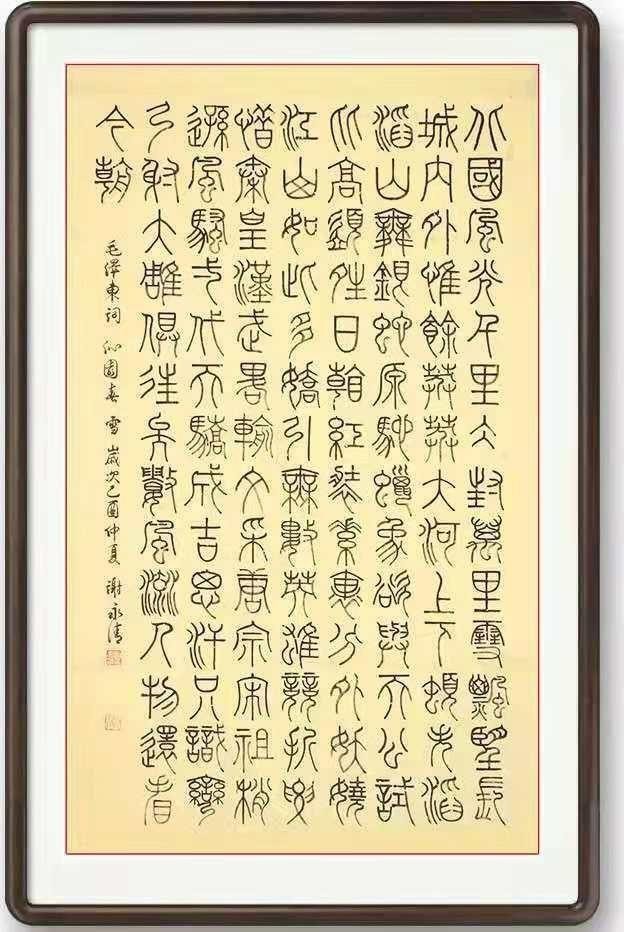 北國風光千里冰封萬里雪飄望長
城內外惟餘莽莽大河上下頓失滔
滔山舞銀蛇原馳蠟象欲與天公試
比高須晴日看紅裝素裹分外妖嬈
江山如此多嬌引無數英雄競折腰
惜秦皇漢武略輸文采唐宗宋祖稍
遜風騷弌代天驕成吉思汗只識彎
弓射大雕俱往矣數風流人物還看
今朝
毛澤東詞 沁園春 雪 歲次己酉仲夏 謝永清